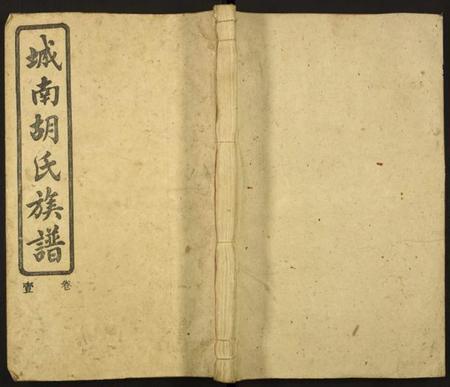 城南胡氏族譜
卷壹